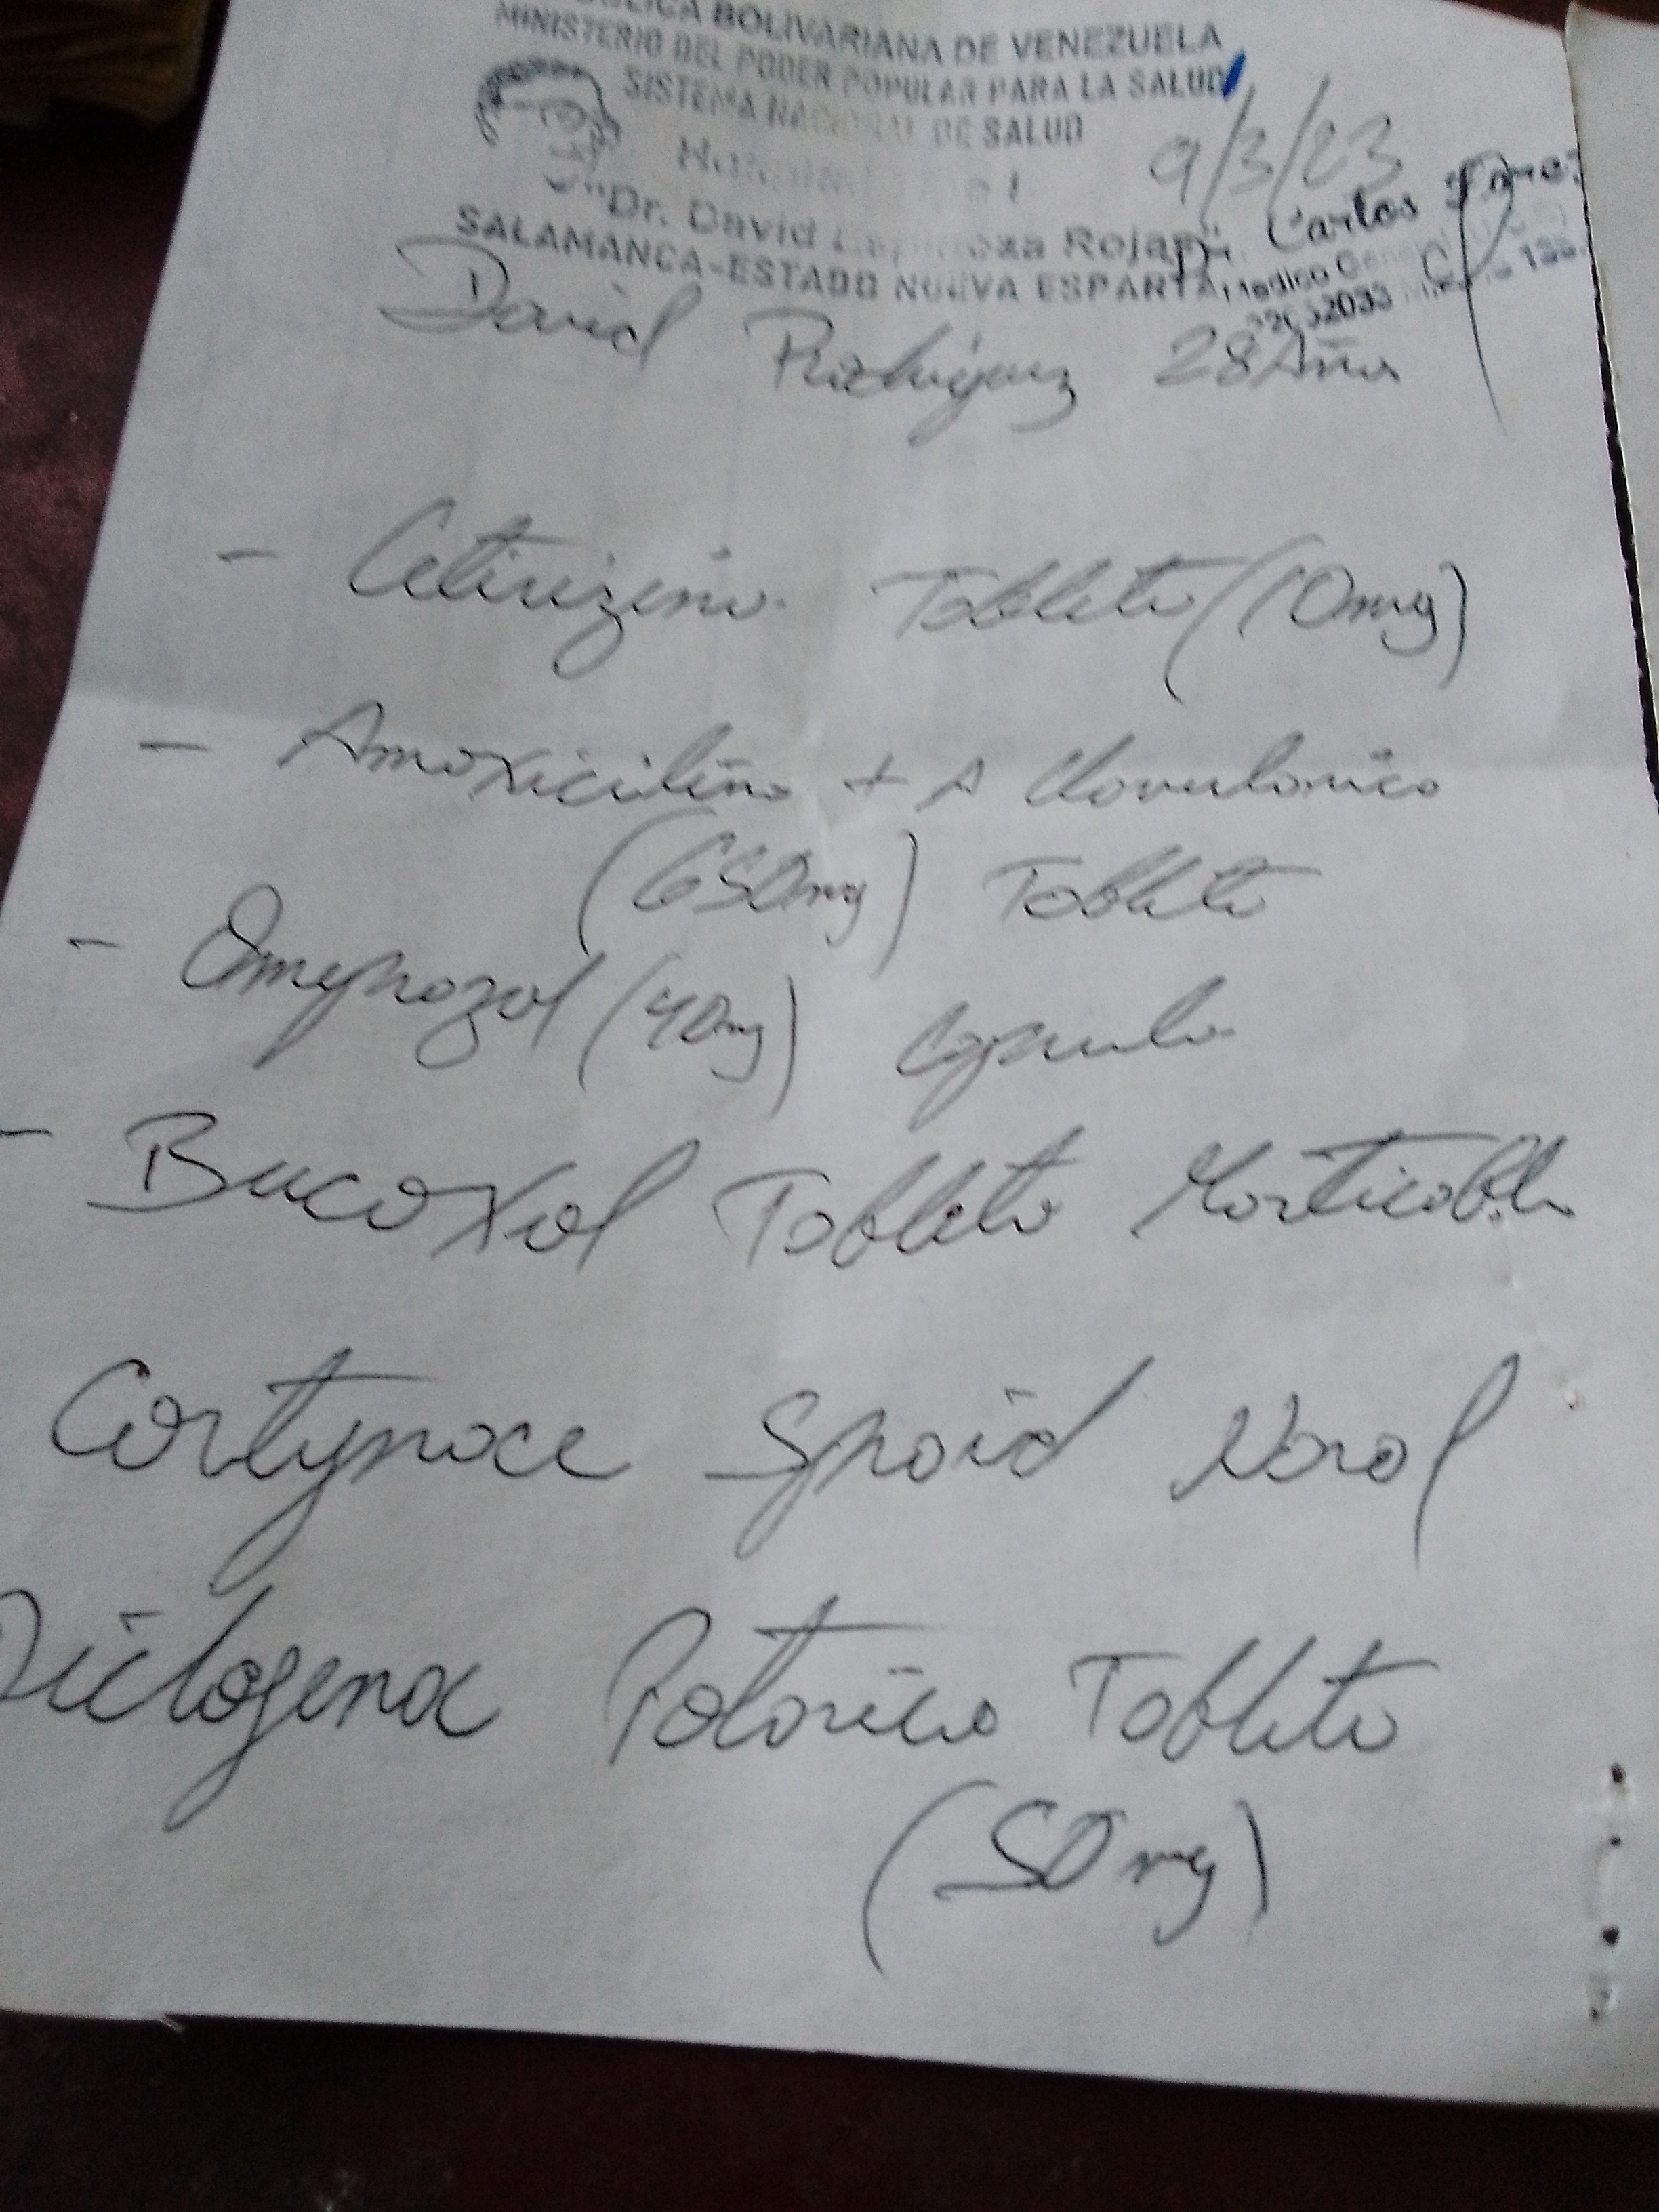 BOLIVARIANA DE VENEZUELA
MINISTERIO DEL PODER POPULAR PARA LA SALUD
SISTEMA NACIONAL DE SALUD
9/3/23
"Dr. David Espinoza Rojas"
Carlos
SALAMANCA-ESTADO NUEVA ESPARTA
Medico
David Rodriguez 28 Años
- Cetirizina Tableta (10mg)
- Amoxicilina + A Clavulanico
(650mg) Tableta
- Omeprazol (40mg) Capsula
- Bucoxol Tableta Masticable
Cortynace Spaid Nasal
Diclofenac Potasico Tableta
(50mg)